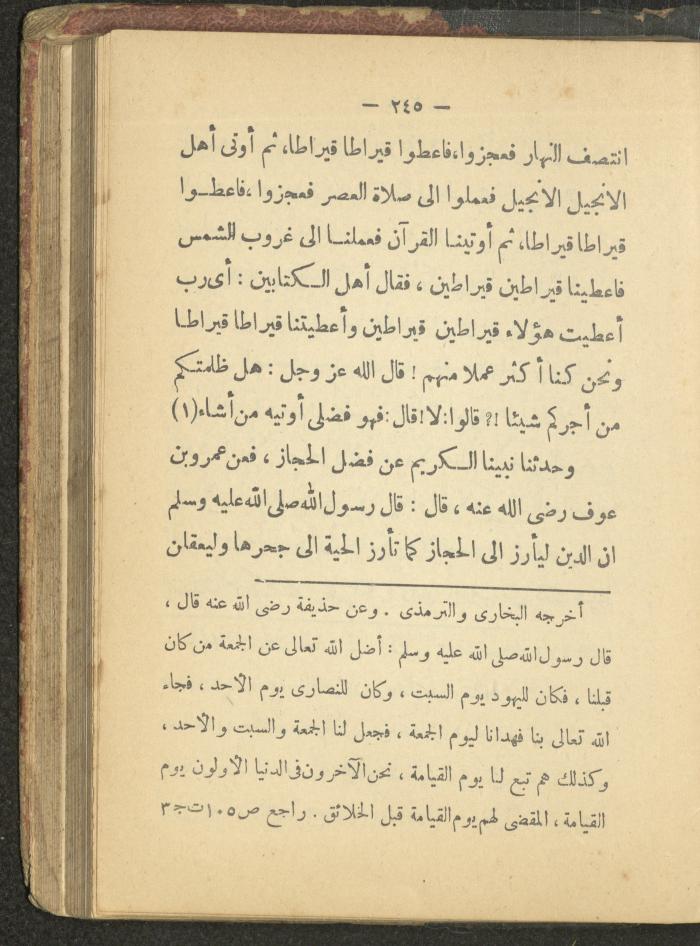 — ٢٤٥ —
انتصف النهار فعجزوا،فاعطوا قيراطا قيراطا، ثم أوتى أهل
الانجيل الانجيل فعملوا الى صلاة العصر فعجزوا ،فاعطــوا
قيراطا قيراطا، ثم أوتينـا القرآن فعملنــا الى غروب الشمس
فاعطينا قيراطين قيراطين ، فقال أهل الــكتابين : أى رب
أعطيت هؤلاء قيراطين قيراطين وأعطيتنا قيراطا قيراطـا
ونحن كنا أكثر عملا منهم ! قال الله عز وجل : هل ظلمتـكم
من أجركم شيئا !? قالوا:لا!قال:فهو فضلى أوتيه من أشاء(١)
وحدثنا نبينا الــكريم عن فضل الحجاز ، فعن عمرو بن
عوف رضى الله عنه ، قال : قال رسول الله صلى الله عليه وسلم
ان الدين ليأرز الى الحجاز كما تأرز الحية الى جحرها وليعقلن
أخرجه البخارى والترمذى . وعن حذيفة رضى الله عنه قال ،
قال رسول الله صلى الله عليه وسلم : أضل الله تعالى عن الجمعة من كان
قبلنا ، فكان لليهود يوم السبت ، وكان للنصارى يوم الأحد ، فجاء
الله تعالى بنا فهدانا ليوم الجمعة ، فجعل لنا الجمعة والسبت والأحد ،
وكذلك هم تبع لنا يوم القيامة ، نحن الآخرون فى الدنيا الأولون يوم
القيامة ، المقضى لهم يوم القيامة قبل الخلائق . راجع ص١٠٥ت ج٣